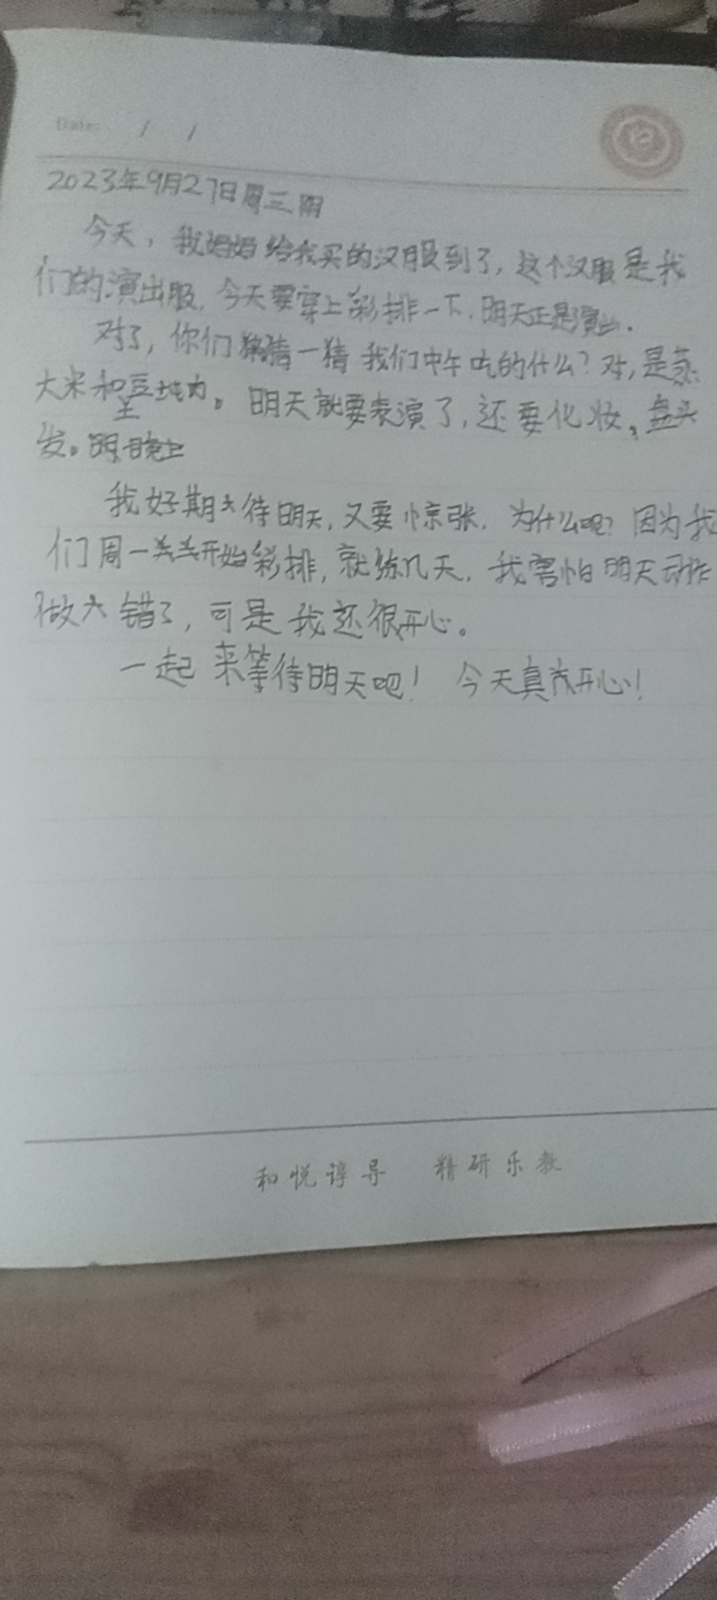 Date: / /
2023年9月27日周三阴
今天，我妈妈给我买的汉服到了，这个汉服是我
们的演出服，今天要穿上彩排一下，明天正是演出。
对了，你们猜猜一猜我们中午吃的什么？对，是蒸
大米和土豆炖肉。明天就要表演了，还要化妆，盘头
发。明
我好期待明天，又要惊张，为什么呢？因为我
们周一开始彩排，就练几天，我害怕明天动作
做错了，可是我还很开心。
一起来等待明天吧！今天真开心！
和悦谆导 精研乐教